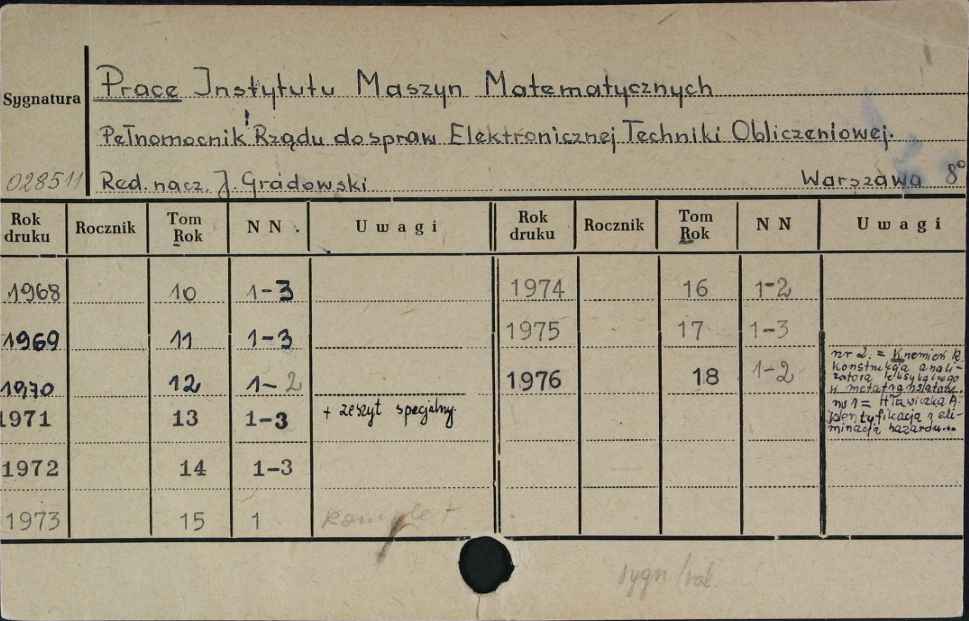 Sygnatura
Prace Instytutu Maszyn Matematycznych
Pełnomocnik Rządu do spraw Elektronicznej Techniki Obliczeniowej.
028511 Red. nacz. J. Gradowski Warszawa 8°
Rok druku Rocznik Tom Rok NN Uwagi Rok druku Rocznik Tom Rok NN Uwagi
1968 10 1-3 1974 16 1-2
1969 11 1-3 1975 17 1-3
1970 12 1-2 1976 18 1-2
nr 2. = Knemień R.
Konstrukcja anali-
zatora leksykalnego
w metatranslatorze.
nr 1 = Hławiczka A.
Identyfikacja i eli-
minacja hazardu...
1971 13 1-3 + zeszyt specjalny
1972 14 1-3
1973 15 1 komplet
sygn/rok.